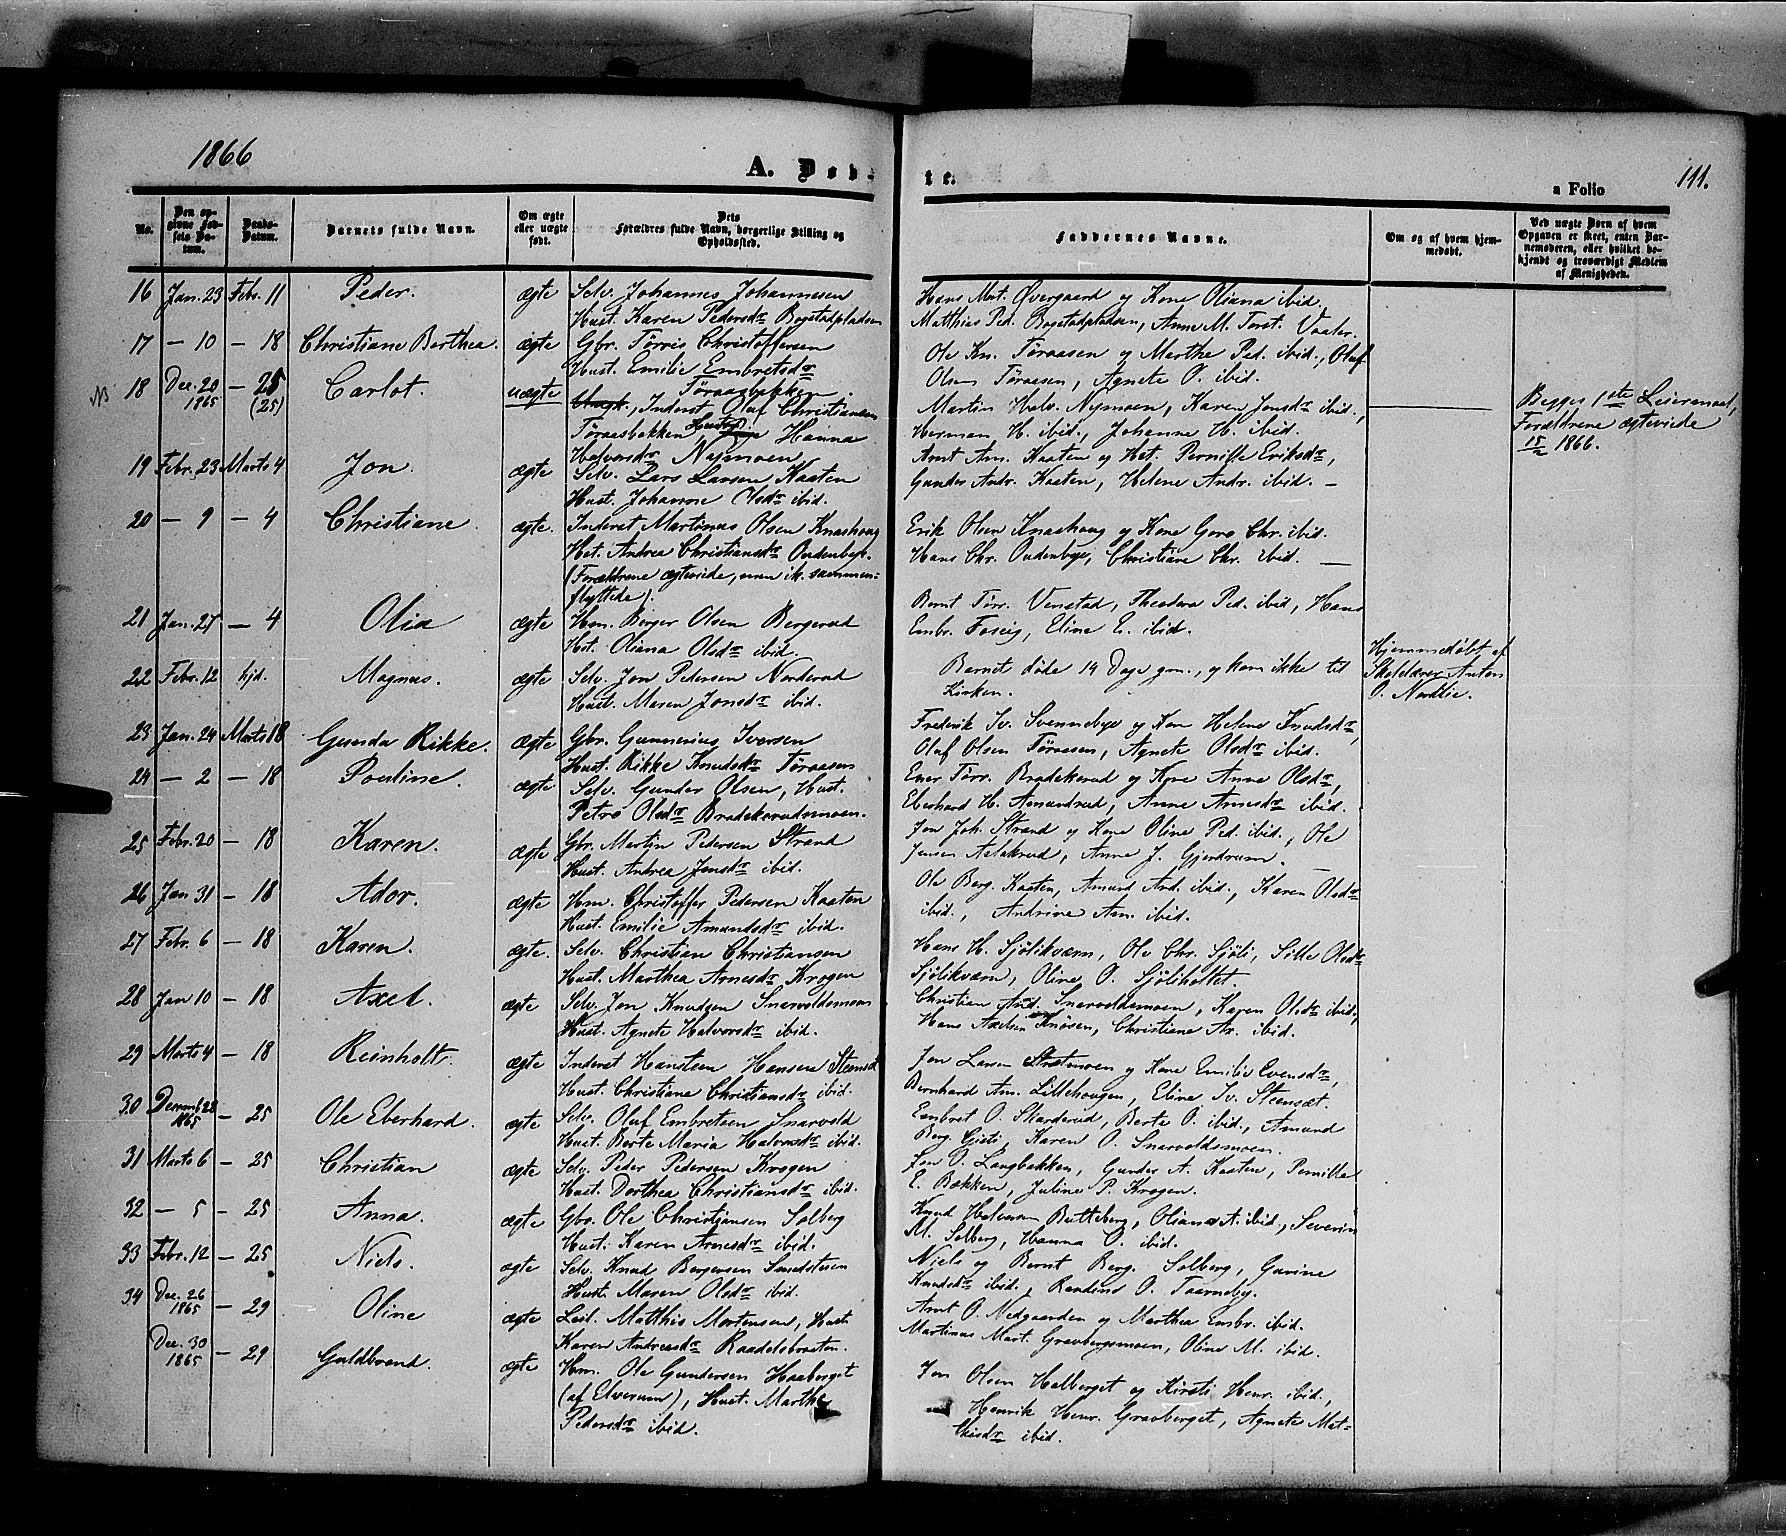 1866
A. Døb-
te.
a Folio 111.
No.
Den op-
givne Fød-
sels Da-
tum.
Daabs-
Datum.
Barnets fulde Navn.
Om ægte
eller uægte
født.
Dets
Forældres fulde Navn, borgerlige Stilling og
Opholdssted.
Faddernes Navne.
Om og af hvem hjem-
medøbt.
Ved uægte Børn af hvem
Opgaven er skeet, enten Bar-
nemoderen, eller hvilket be-
kjendt og troværdigt Medlem
af Menigheden.
16 Jan. 23 Febr. 11 Peder. ægte
Selv. Johannes Johannesen
Hust. Karen Pedersdr Bogstadpladsen
Hans Mort. Øvergaard og Kone Oliana ibid.
Matthias Ped. Bogstadpladsen, Anne M. Torst. Vaaler.
17 — 10 — 18 Christiane Berthea. ægte
Gbr. Tørris Christoffersen
Hust. Emilie Embretsdr
Tøraasbakken
Ole Kn. Tøraasen og Marthe Ped. ibid., Oluf
Olsen Tøraasen, Agnete O. ibid.
NB 18 Dec. 20 1865 — 25 (25) Carlot. uægte
Ungk., Inderst Oluf Christiansen
Tøraasbakken, Hust. Hanna
Halvorsdr Nymoen
Martin Halv. Nymoen, Karen Jonsdr ibid.,
Herman H. ibid., Johanne H. ibid.
Begges 1ste Leiermaal,
Forældrene ægteviede
15/2 1866.
19 Febr. 23 Marts 4 Jon. ægte
Selv. Lars Larsen Kaaten
Hust. Johanne Olsdr ibid.
Arnt Am. Kaaten og Hst. Pernille Eriksdr,
Gunder Andr. Kaaten, Helene Andr. ibid. —
20 — 9 — 4 Christiane. ægte.
Inderst Martinus Olsen Knashaug
Hst. Andrea Christiansdr Oudenbye.
(Forældrene ægteviede, men ik. sammen-
flyttede).
Erik Olsen Knashaug og Kone Goro Chr. ibid.
Hans Chr. Oudenbye, Christiane Chr. ibid. —
21 Jan. 27 — 4 Olia ægte
Hm. Berger Olsen Bergerud
Hst. Oliana Olsdr ibid.
Bernt Tørr. Venstad, Theodora Ped. ibid, Hans
Embr. Foseig, Eline E. ibid.
22 Febr. 12 hjd. Magnus. ægte
Selv. Jon Pedersen Norderud
Hust. Maren Jonsdr ibid.
Barnet døde 14 Dage gm., og kom ikke til
Kirken.
Hjemmedøbt af
Skolelærer Anton
O. Nordlie.
23 Jan. 24 Marts 18 Gunda Rikke. ægte
Gbr. Gunnerius Iversen
Hust. Rikke Knudsdr Tøraasen
Frederik Iv. Svennebye og Kone Helene Knudsdr,
Oluf Olsen Tøraasen, Agnete Olsdr ibid.
24 — 2 — 18 Pouline. ægte
Selv. Gunder Olsen, Hust.
Petra Olsdr Bradekerudsmoen.
Ener Tørr. Bradekerud og Kone Anne Olsdr,
Eberhard H. Amundrud, Anne Arnesdr ibid.
25 Febr. 20 — 18 Karen. ægte
Gbr. Martin Pedersen Strand
Hust. Andrea Jonsdr ibid.
Jon Joh. Strand og Kone Oline Ped. ibid., Ole
Jensen Aalakrud, Anne J. Gjerdrum. —
26 Jan 31 — 18 Ador. ægte
Hm. Christoffer Pedersen Kaaten
Hust. Emilie Amundsdr ibid.
Ole Berg. Kaaten, Amund And. ibid., Karen Olsdr
ibid., Andrine Am. ibid.
27 Febr. 6 — 18 Karen. ægte.
Selv. Christian Christiansen
Hust. Marthea Arnesdr Krogen
Hans H. Sjølikværn, Ole Chr. Sjøli, Sille Olsdr
Sjølikværn, Oline O. Sjøliholtet.
28 Jan 10 — 18 Axel. ægte
Selv. Jon Knudsen Snarvoldsmoen
Hust. Agnete Halvorsdr ibid.
Christian And. Snarvoldsmoen, Karen Olsdr ibid.,
Hans Axelsen Knøsen, Christiane Ax. ibid.
29 Marts 4 — 18 Reinholt. ægte
Inderst Hansteen Hansen Steenset
Hust. Christiane Christiansdr ibid.
Jon Larsen Strætmoen og Kone Emilie Evensdr,
Bernhard Am. Lillehougen, Eline Iv. Steensæt.
30 Decmb. 28 1865 — 25 Ole Eberhard. ægte
Selv. Oluf Embretsen Snarvold
Hust. Berte Maria Halvorsdr ibid.
Embret O. Skarderud, Berte O. ibid., Amund
Berg. Gjeti, Karen O. Snarvoldsmoen.
31 Marts 6 — 25 Christian ægte
Selv. Peder Pedersen Krogen
Hust. Dorthea Christiansdr ibid.
Jon O. Langbakken, Gunder A. Kaaten, Pernille
E. Bakken, Juline P. Krogen.
32 — 5 — 25 Anna. ægte
Gbr. Ole Christiansen Solberg
Hust. Karen Arnesdr ibid.
Knud Halvorsen Butteberg, Oliana A. ibid., Severin
M. Solberg, Hanna O. ibid.
33 Febr. 12 — 25 Niels. ægte
Selv. Knud Bergersen Smedstuen
Hust. Maren Olsdr ibid.
Niels og Bernt Berg. Solberg, Gurine
Knudsdr ibid., Randine O. Taarneby.
34 Dec. 26 1865 — 29 Oline ægte
Leil. Matthis Mortensen, Hust.
Karen Andreasdr Raadelsbraaten.
Arnt O. Nedgaarden og Marthea Embr. ibid.
Martinus Mart. Gravbergsmoen, Oline M. ibid.
Dec. 30 1865 — 29 Guldbrand. ægte
Hm. Ole Gundersen Haaberget
(af Elverum), Hust. Marthe
Pedersdr ibid.
Jon Olsen Halberget og Kirsti Henr. ibid.,
Henrik Henr. Gravberget, Agnete Mat-
thisdr ibid.